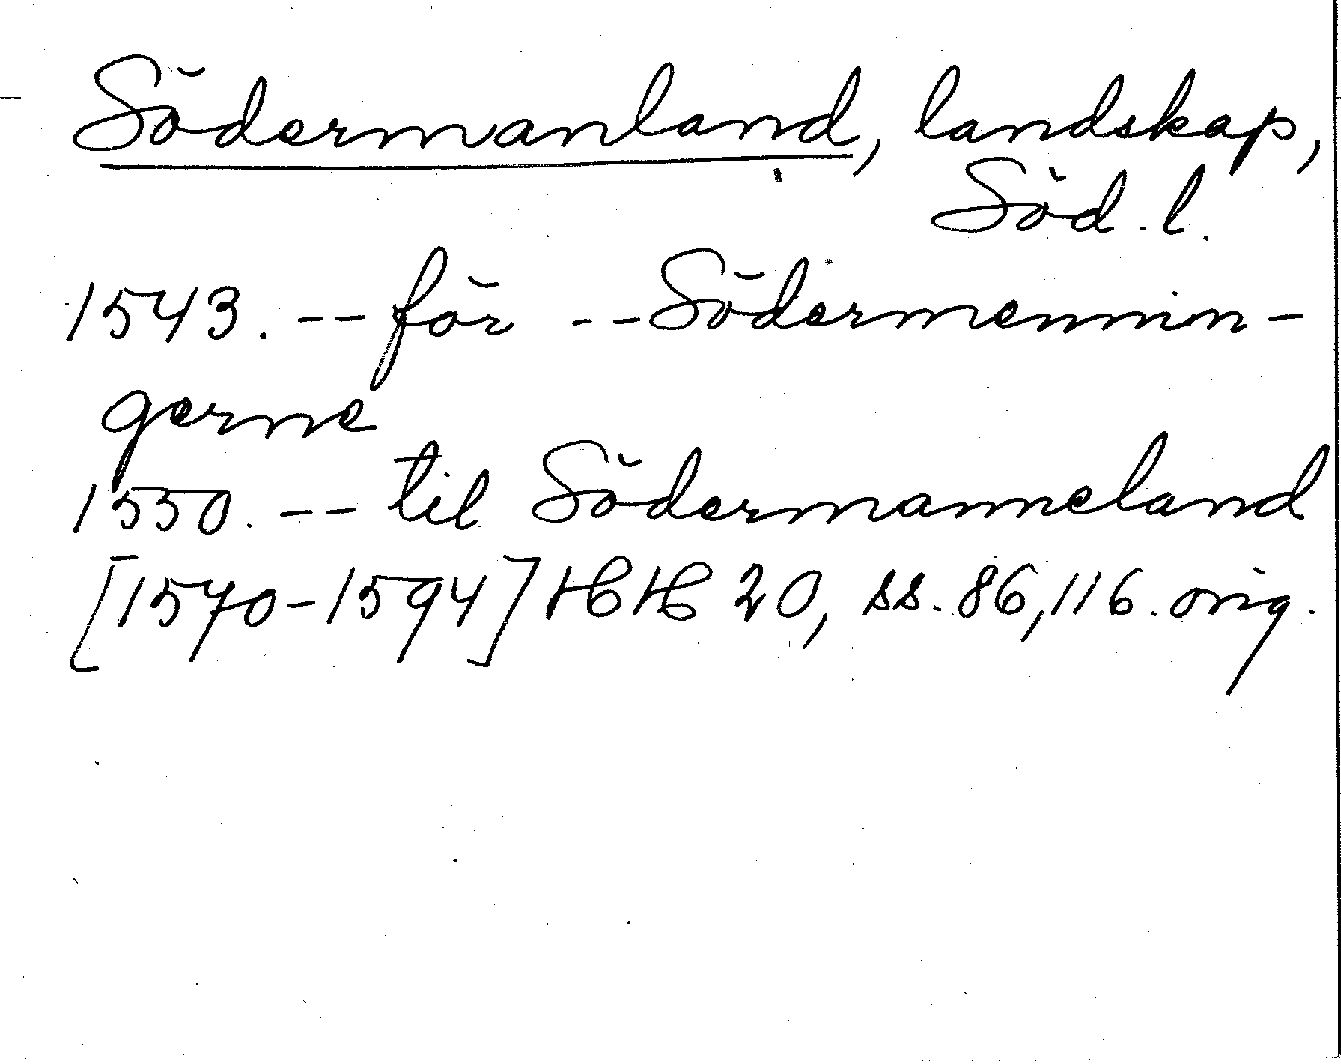 Södermanland, landskap,
Söd. l.
1543. -- för -- Södermennin-
gerne
1550. -- til Södermanneland
[1570-1594] HH 20, ss. 86, 116. orig.